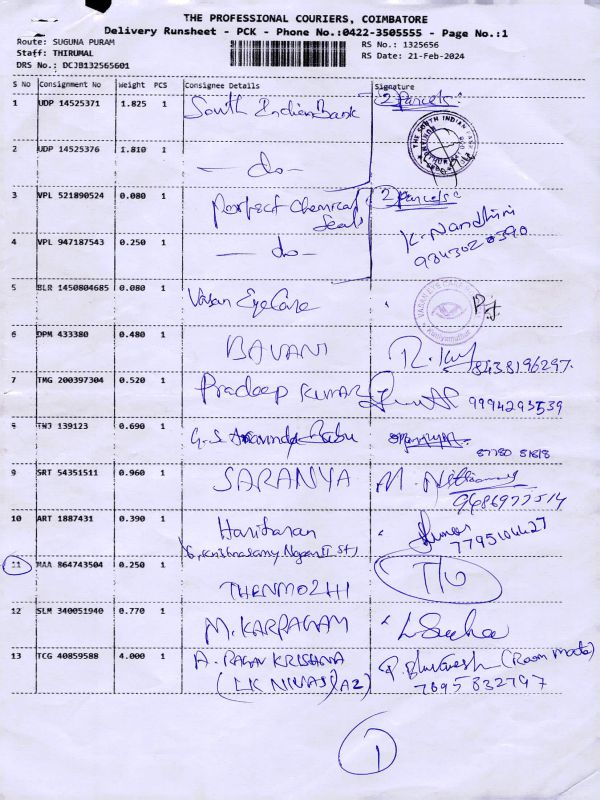 THE PROFESSIONAL COURIERS, COIMBATORE
Delivery Runsheet - PCK - Phone No.:0422-3505555 - Page No.:1
Route: SUGUNA PURAM RS No.: 1325656
Staff: THIRUMAL RS Date: 21-Feb-2024
DRS No.: DCJB132565601
S No Consignment No Weight PCS Consignee Details Signature
1 UDP 14525371 1.825 1 South Indian Bank 2 Parcels
2 UDP 14525376 1.810 1 — do —
THE SOUTH INDIAN BANK
3 VPL 521890524 0.080 1 Perfect Chemical 2 Parcels
Seals K. Nandhini
4 VPL 947187543 0.250 1 — do —
5 BLR 1450804685 0.080 1 Vasan Eye Care
VASAN EYE CARE
6 DPM 433380 0.480 1 BAVANI 8438196297.
7 TMG 200397304 0.520 1 Pradeep KUMAR 9994293539
8 TNJ 139123 0.690 1 G.S Ananda Babu
9 SRT 54351511 0.960 1 SARANYA
10 ART 1887431 0.390 1 Hariharan
11 MAA 864743504 0.250 1 THENMOZHI
12 SLM 340051940 0.770 1 M. KARPAGAM
13 TCG 40859588 4.000 1 A. RAGAV KRISHNA (Room mate)
(LK NIVAS) (A2) 7695832797
1